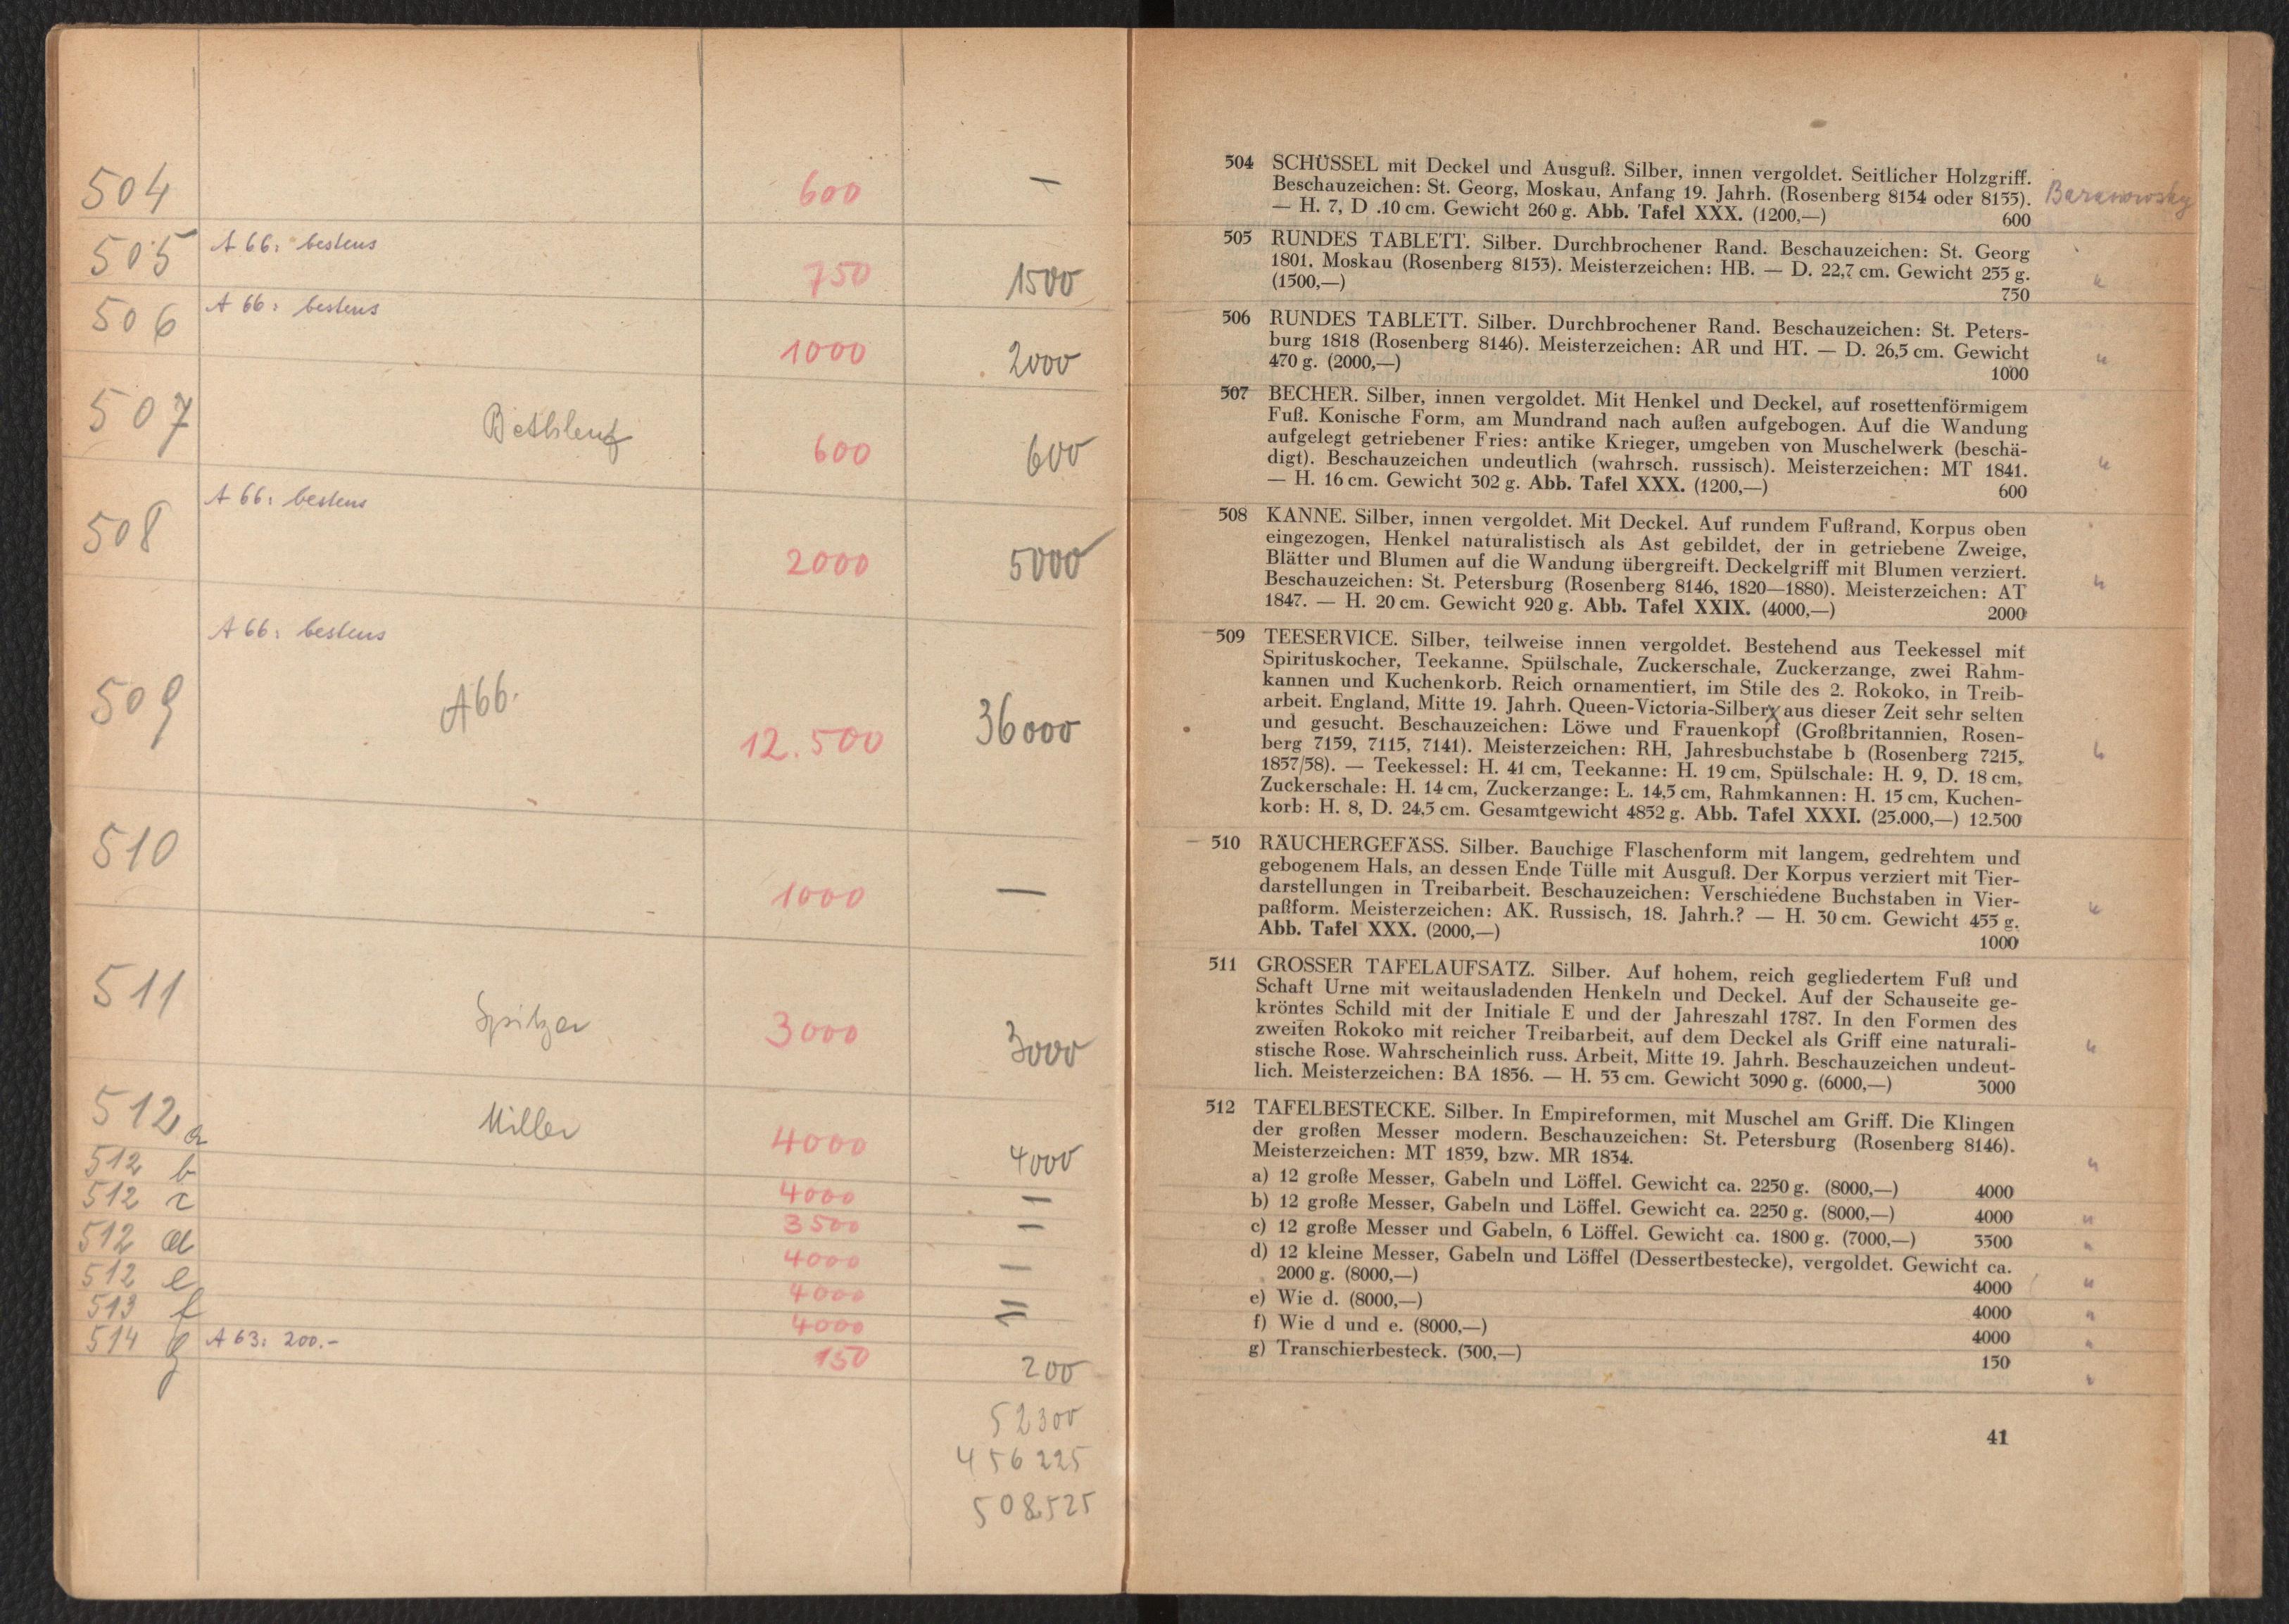 504 600 —
505 A 66: bestens 750 1500
506 A 66: bestens 1000 2000
507 600 600
508 A 66: bestens 2000 5000
A 66: bestens
509 A66. 12.500 36000
510 1000 —
511 Spitzer 3000 3000
512 a Miller 4000 4000
512 b 4000 —
512 c 3500 —
512 d 4000 —
512 e 4000 —
513 f 4000 —
514 g A 63: 200.- 150 200
52300
456225
508525
504 SCHÜSSEL mit Deckel und Ausguß. Silber, innen vergoldet. Seitlicher Holzgriff.
Beschauzeichen: St. Georg, Moskau, Anfang 19. Jahrh. (Rosenberg 8154 oder 8155). Baranowsky
— H. 7, D .10 cm. Gewicht 260 g. Abb. Tafel XXX. (1200,—) 600
505 RUNDES TABLETT. Silber. Durchbrochener Rand. Beschauzeichen: St. Georg
1801, Moskau (Rosenberg 8153). Meisterzeichen: HB. — D. 22,7 cm. Gewicht 255 g. "
(1500,—) 750
506 RUNDES TABLETT. Silber. Durchbrochener Rand. Beschauzeichen: St. Peters-
burg 1818 (Rosenberg 8146). Meisterzeichen: AR und HT. — D. 26,5 cm. Gewicht "
470 g. (2000,—) 1000
507 BECHER. Silber, innen vergoldet. Mit Henkel und Deckel, auf rosettenförmigem
Fuß. Konische Form, am Mundrand nach außen aufgebogen. Auf die Wandung
aufgelegt getriebener Fries: antike Krieger, umgeben von Muschelwerk (beschä-
digt). Beschauzeichen undeutlich (wahrsch. russisch). Meisterzeichen: MT 1841. "
— H. 16 cm. Gewicht 302 g. Abb. Tafel XXX. (1200,—) 600
508 KANNE. Silber, innen vergoldet. Mit Deckel. Auf rundem Fußrand, Korpus oben
eingezogen, Henkel naturalistisch als Ast gebildet, der in getriebene Zweige,
Blätter und Blumen auf die Wandung übergreift. Deckelgriff mit Blumen verziert.
Beschauzeichen: St. Petersburg (Rosenberg 8146, 1820—1880). Meisterzeichen: AT "
1847. — H. 20 cm. Gewicht 920 g. Abb. Tafel XXIX. (4000,—) 2000
509 TEESERVICE. Silber, teilweise innen vergoldet. Bestehend aus Teekessel mit
Spirituskocher, Teekanne, Spülschale, Zuckerschale, Zuckerzange, zwei Rahm-
kannen und Kuchenkorb. Reich ornamentiert, im Stile des 2. Rokoko, in Treib-
arbeit. England, Mitte 19. Jahrh. Queen-Victoria-Silber aus dieser Zeit sehr selten
und gesucht. Beschauzeichen: Löwe und Frauenkopf (Großbritannien, Rosen-
berg 7159, 7115, 7141). Meisterzeichen: RH, Jahresbuchstabe b (Rosenberg 7215, "
1857/58). — Teekessel: H. 41 cm, Teekanne: H. 19 cm, Spülschale: H. 9, D. 18 cm,
Zuckerschale: H. 14 cm, Zuckerzange: L. 14,5 cm, Rahmkannen: H. 15 cm, Kuchen-
korb: H. 8, D. 24,5 cm. Gesamtgewicht 4852 g. Abb. Tafel XXXI. (25.000,—) 12.500
510 RÄUCHERGEFÄSS. Silber. Bauchige Flaschenform mit langem, gedrehtem und
gebogenem Hals, an dessen Ende Tülle mit Ausguß. Der Korpus verziert mit Tier-
darstellungen in Treibarbeit. Beschauzeichen: Verschiedene Buchstaben in Vier-
paßform. Meisterzeichen: AK. Russisch, 18. Jahrh.? — H. 30 cm. Gewicht 455 g. "
Abb. Tafel XXX. (2000,—) 1000
511 GROSSER TAFELAUFSATZ. Silber. Auf hohem, reich gegliedertem Fuß und
Schaft Urne mit weitausladenden Henkeln und Deckel. Auf der Schauseite ge-
kröntes Schild mit der Initiale E und der Jahreszahl 1787. In den Formen des
zweiten Rokoko mit reicher Treibarbeit, auf dem Deckel als Griff eine naturali-
stische Rose. Wahrscheinlich russ. Arbeit, Mitte 19. Jahrh. Beschauzeichen undeut- "
lich. Meisterzeichen: BA 1856. — H. 53 cm. Gewicht 3090 g. (6000,—) 3000
512 TAFELBESTECKE. Silber. In Empireformen, mit Muschel am Griff. Die Klingen
der großen Messer modern. Beschauzeichen: St. Petersburg (Rosenberg 8146).
Meisterzeichen: MT 1839, bzw. MR 1834. "
a) 12 große Messer, Gabeln und Löffel. Gewicht ca. 2250 g. (8000,—) 4000
b) 12 große Messer, Gabeln und Löffel. Gewicht ca. 2250 g. (8000,—) 4000 "
c) 12 große Messer und Gabeln, 6 Löffel. Gewicht ca. 1800 g. (7000,—) 3500 "
d) 12 kleine Messer, Gabeln und Löffel (Dessertbestecke), vergoldet. Gewicht ca.
2000 g. (8000,—) 4000 "
e) Wie d. (8000,—) 4000 "
f) Wie d und e. (8000,—) 4000 "
g) Transchierbesteck. (300,—) 150 "
41